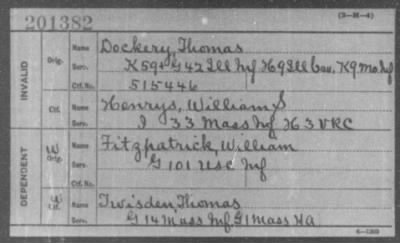 (3-M-4)
201382
INVALID
Orig. Name Dockery, Thomas
Serv. K 59 & G 42 Ill Inf H 9 Ill Cav. K 9 Mo Inf
Ctf. No. 515446
Ctf. Name Henrys, William S
Serv. I 33 Mass Inf H 3 VRC
DEPENDENT
W Orig. Name Fitzpatrick, William
Serv. G 101 USC Inf
Ctf. No.
W Ctf. Name Twisden, Thomas
Serv. G 14 Mass Inf G 1 Mass HA